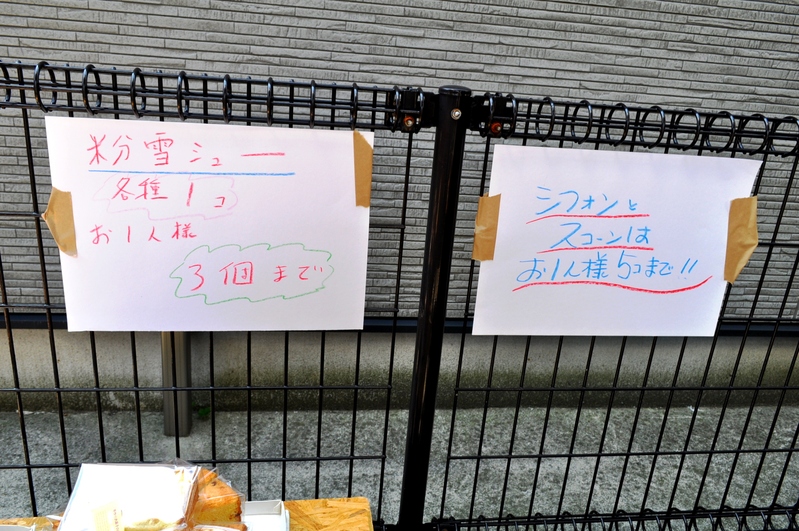 粉雪シュー
各種1コ
お1人様
3個まで
シフォンと
スコーンは
お1人様5コまで!!